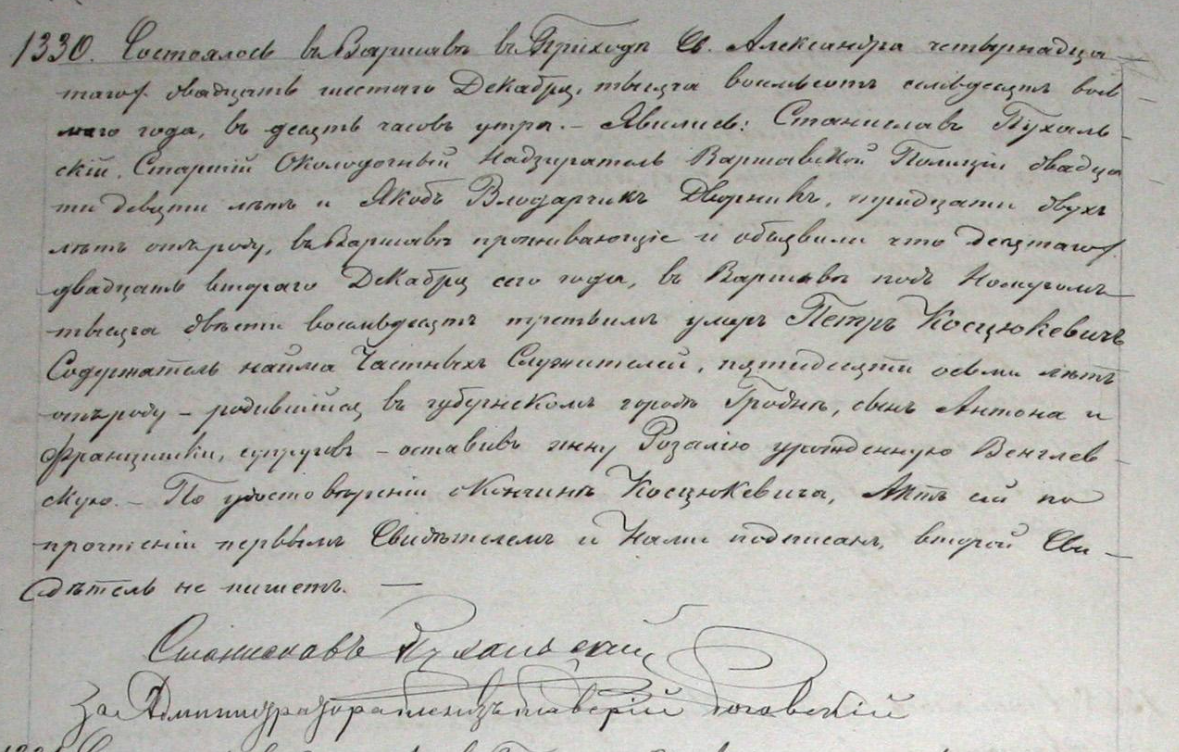 1330. Состоялось въ Варшавѣ въ Приходѣ Св. Александра четырнадца
таго/ двадцать шестаго Декабря, тысяча восемьсотъ семьдесятъ вось
маго года, въ десять часовъ утра. – Явились: Станиславъ Пухаль
скій, Старшій Околодочный Надзиратель Варшавской Полиціи двадца
ти девяти лѣтъ и Якобъ Влодарчикъ Дворникъ, тридцати двухъ
лѣтъ отъ роду, въ Варшавѣ проживающіе и объявили что десятаго/
двадцать втораго Декабря сего года, въ Варшавѣ подъ Номеромъ
тысяча двѣсти восемьдесятъ третьимъ умеръ Петръ Косцюкевичъ
Содержатель найма Частныхъ Служителей, пятидесяти осьми лѣтъ
отъ роду – родившійся въ губернскомъ городѣ Гроднѣ, сынъ Антона и
Францишки, супруговъ – оставивъ жену Розалію урожденную Венглев
скую. – По удостовѣреніи о кончинѣ Косцюкевича, Актъ сей по
прочтеніи первымъ Свидѣтелемъ и Нами подписанъ, второй Сви–
дѣтель не пишетъ. —
Станиславъ Пухальскій
За Администратора